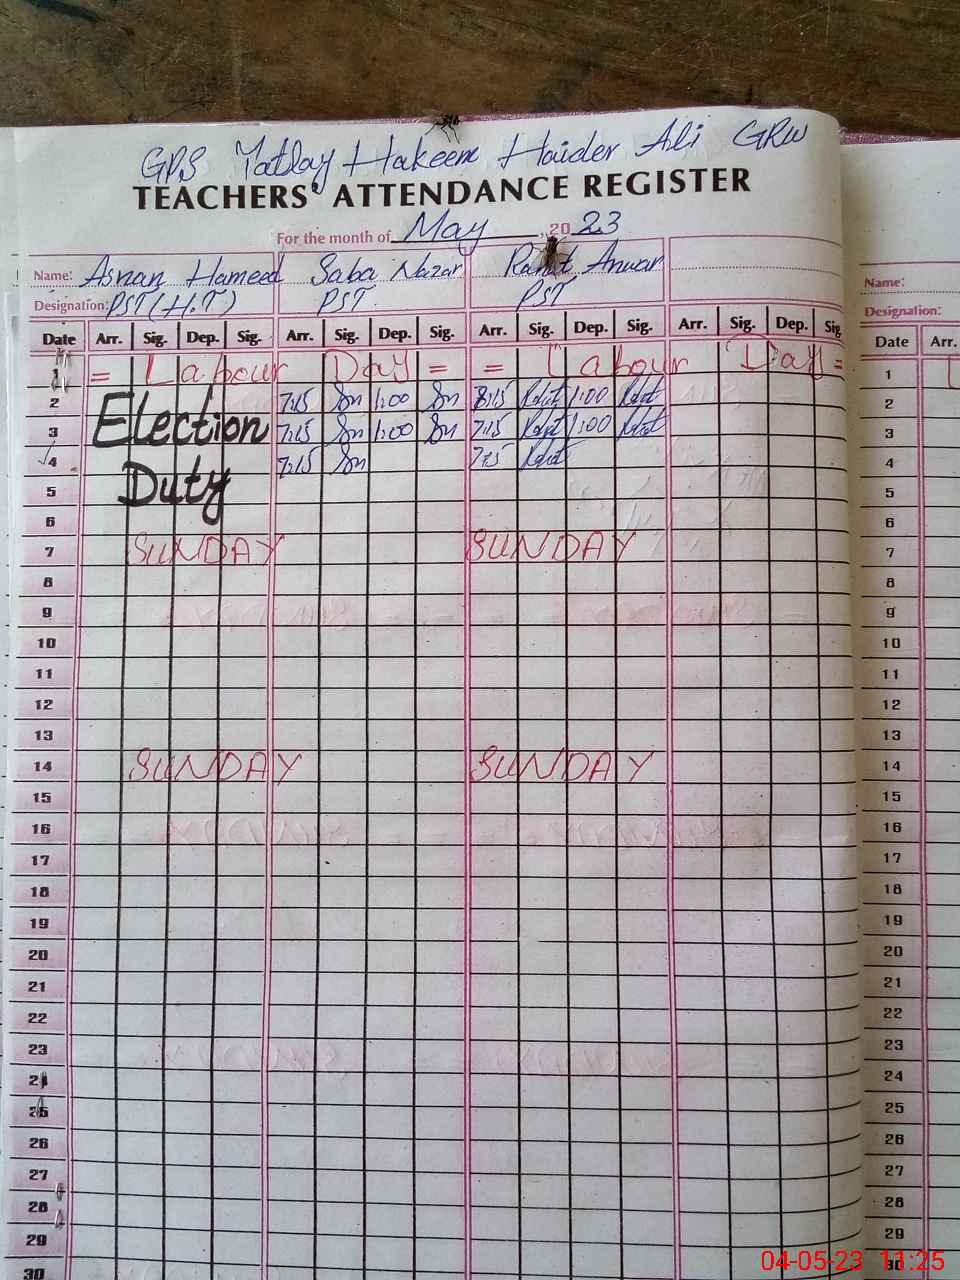 GPS Hakeem Haider Ali GRW
TEACHERS' ATTENDANCE REGISTER
For the month of May, 2023
Name: Asnan Hameed Saba Nazar Anwar
Designation: PST (H.T) PST PST
Date Arr. Sig. Dep. Sig. Arr. Sig. Dep. Sig. Arr. Sig. Dep. Sig. Arr. Sig. Dep. Sig
1 = Labour Day = = Labour Day =
2 Election 7:15 Sn 1:00 Sn 8:15 1:00
3 7:15 Sn 1:00 Sn 7:15 1:00
4 Duty 7:15 Sn 7:15
5
6
7 SUNDAY SUNDAY
8
9
10
11
12
13
14 SUNDAY SUNDAY
15
16
17
18
19
20
21
22
23
24
25
26
27
28
29
30
Name:
Designation:
Date Arr.
1
2
3
4
5
6
7
8
9
10
11
12
13
14
15
16
17
18
19
20
21
22
23
24
25
26
27
28
29
30
04-05-23 11:25